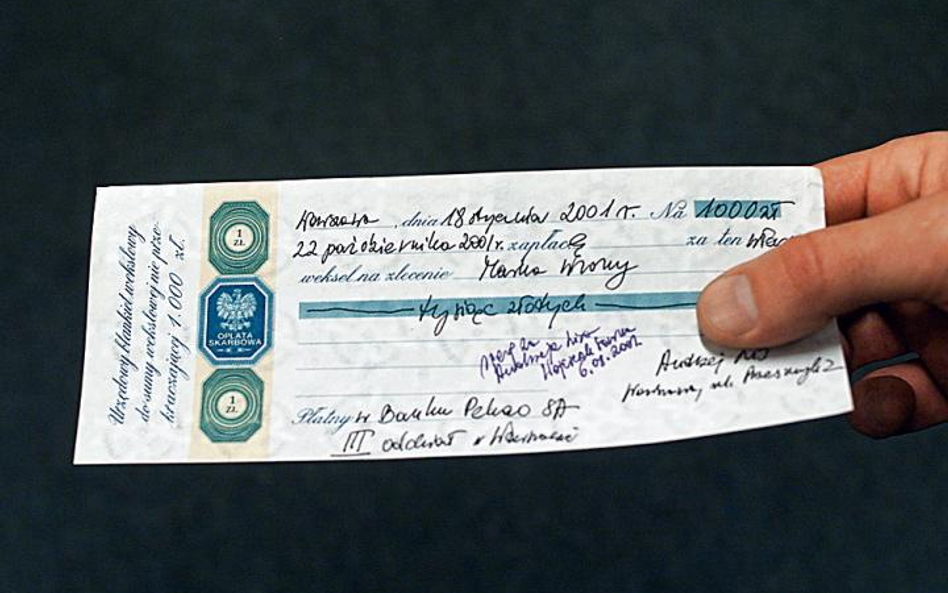 Urzędowy blankiet wekslowy
do sumy wekslowej nie prze-
kraczającej 1.000 zł.
1
ZŁ
OPŁATA
SKARBOWA
1
ZŁ
Warszawa, dnia 18 stycznia 2001 r. Na 1000 zł
22 października 2001 r. zapłacę za ten
weksel na zlecenie Marka Wrony
tysiąc złotych
Wojciech
Andrzej
Warszawa, ul. 2
Płatny w Banku Pekao SA
III oddział w Warszawie